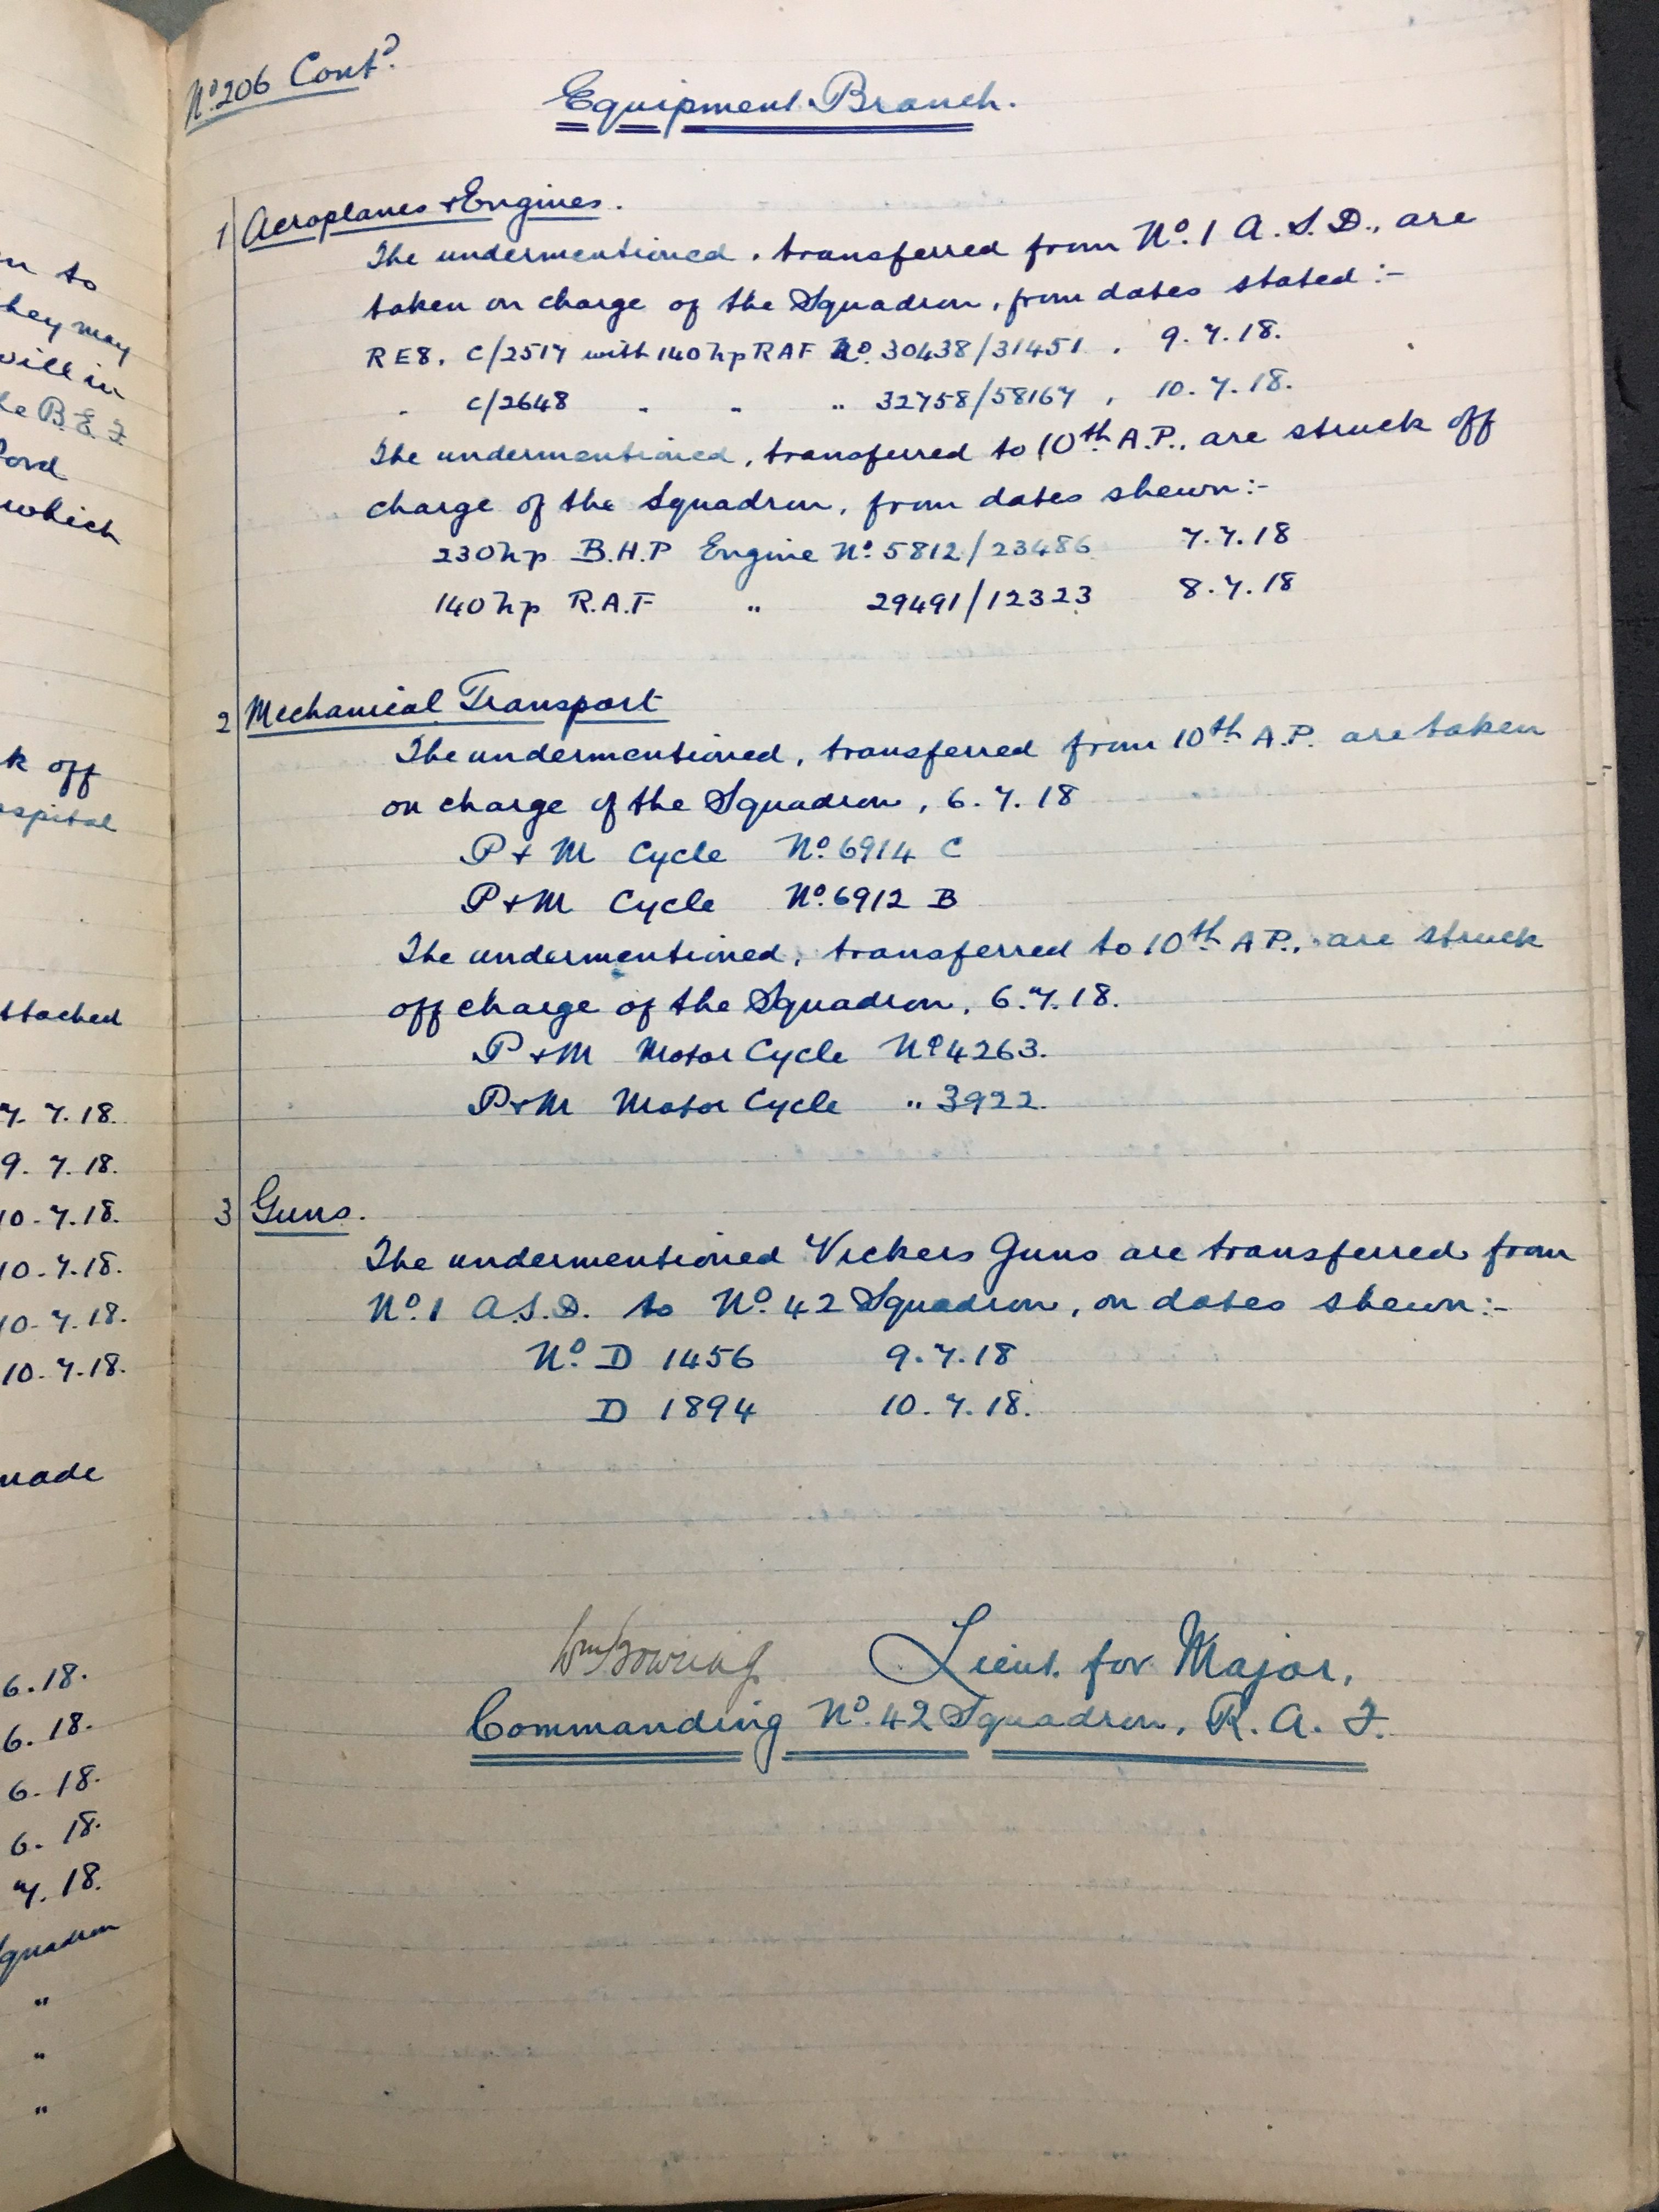 n to
hey may
will in
le B.E.F
ord
which
k off
ospital
ttached
7. 7.18.
9. 7.18.
10.7.18.
10.7.18.
10.7.18.
10.7.18.
made
6.18.
6.18.
6.18.
6.18.
7.18.
Squadron
"
"
"
Nº 206 Contᴰ.
Equipment Branch.
1 Aeroplanes & Engines.
The undermentioned, transferred from Nº.1 A.S.D., are
taken on charge of the Squadron, from dates stated:-
RE8. C/2517 with 140hp RAF Nº. 30438/31451, 9.7.18.
" C/2648 " " " 32758/58167, 10.7.18.
The undermentioned, transferred to 10th A.P., are struck off
charge of the Squadron, from dates shewn:-
230hp B.H.P Engine Nº. 5812/23486 7.7.18
140hp R.A.F " 29491/12323 8.7.18
2 Mechanical Transport
The undermentioned, transferred from 10th A.P. are taken
on charge of the Squadron, 6.7.18
P & M Cycle Nº. 6914 C
P & M Cycle Nº. 6912 B
The undermentioned, transferred to 10th A.P., are struck
off charge of the Squadron, 6.7.18.
P & M Motor Cycle Nº 4263.
P & M Motor Cycle " 3922.
3 Guns.
The undermentioned Vickers Guns are transferred from
Nº.1 A.S.D. to Nº. 42 Squadron, on dates shewn:-
Nº. D 1456 9.7.18
D 1894 10.7.18.
Wm Gowring Lieut. for Major,
Commanding Nº. 42 Squadron, R.A.F.